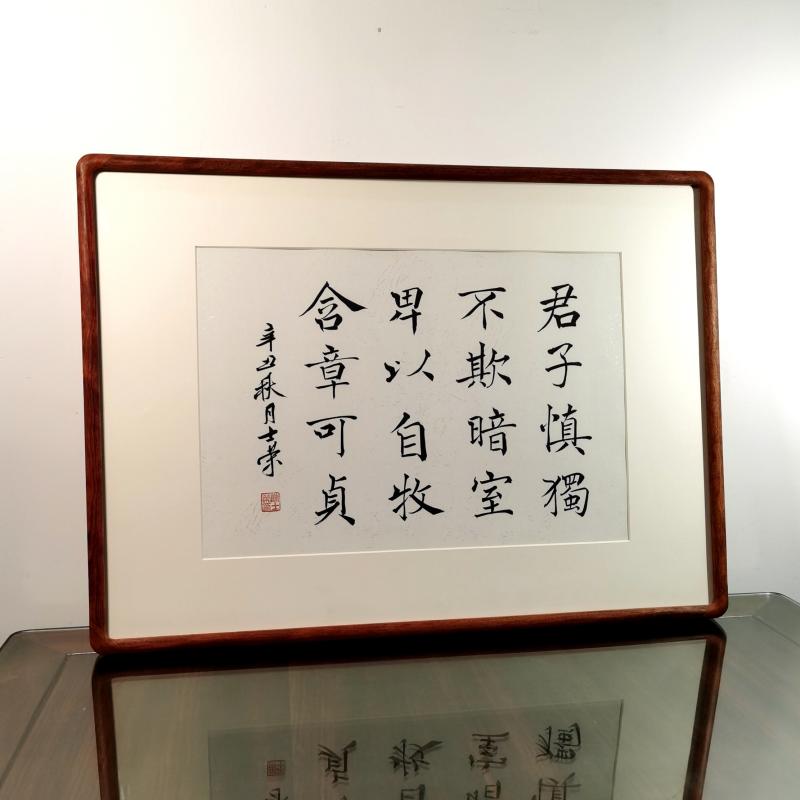 君子慎獨
不欺暗室
卑以自牧
含章可貞
辛丑秋月士榮